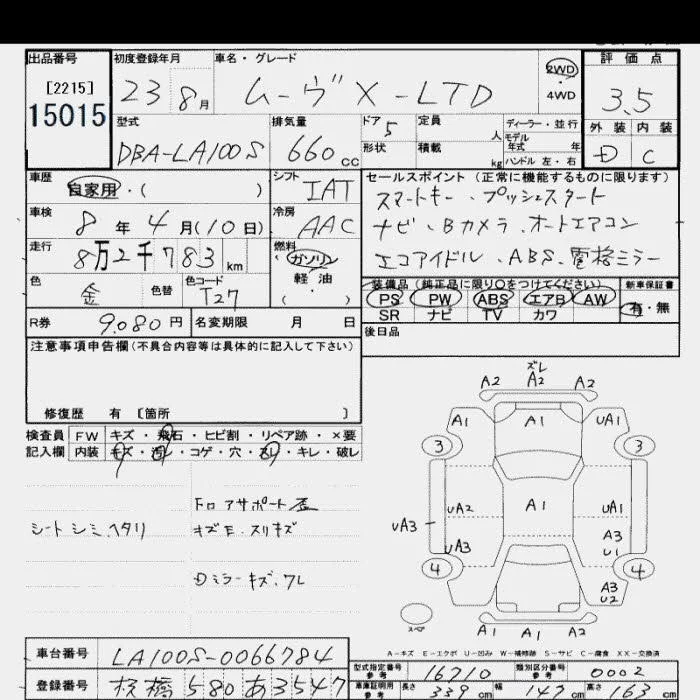 出品番号 初度登録年月 車名・グレード 評価点
[2215]
15015
23 8月 ムーヴ X-LTD 2WD ・ 4WD 3.5
型式 排気量 ドア 5 定員 人 ディーラー・並行 外装 内装
DBA-LA100S 660cc 形状 積載 kg モデル年式 年式 ハンドル 左・右 D C
車歴 自家用・( ) シフト IAT セールスポイント (正常に機能するものに限ります)
スマートキー、プッシュスタート
車検 8年4月(10日) 冷房 AAC ナビ、Bカメラ、オートエアコン
走行 8万2千783km 燃料 ガソリン・軽油・( ) エコアイドル、ABS、電格ミラー
色 金 色替 色コード T27 装備品(純正品に限り○をつけてください) 新車保証書
PS PW ABS エアB AW 有・無
SR ナビ TV カワ
R券 9,080円 名変期限 月 日 後日品
注意事項申告欄(不具合内容等は具体的に記入して下さい)
修復歴 有 [箇所 ]
検査員記入欄 FW キズ・飛石・ヒビ割・リペア跡・×要
内装 キズ・汚れ・コゲ・穴・スレ・キレ・破レ
Fロアサポート歪
シートシミ、ヘタリ キズE、スリキズ
Dミラーキズ、ワレ
ズレ
A2 A2 A2
A1 A1 UA1
3 3
UA2 A1 UA1
UA3 A3
UA3 U1
4 4
A3
U2
スペア
A1 A1 A2
A-キズ E-エクボ U-凹み W-補修跡 S-サビ C-腐食 XX-交換済
車台番号 LA100S-0066784 型式指定番号 参考 16710 類別区分番号 参考 0002
登録番号 板橋 580 あ 3547 車庫証明用 参考 長さ 339cm 幅 147cm 高さ 163cm